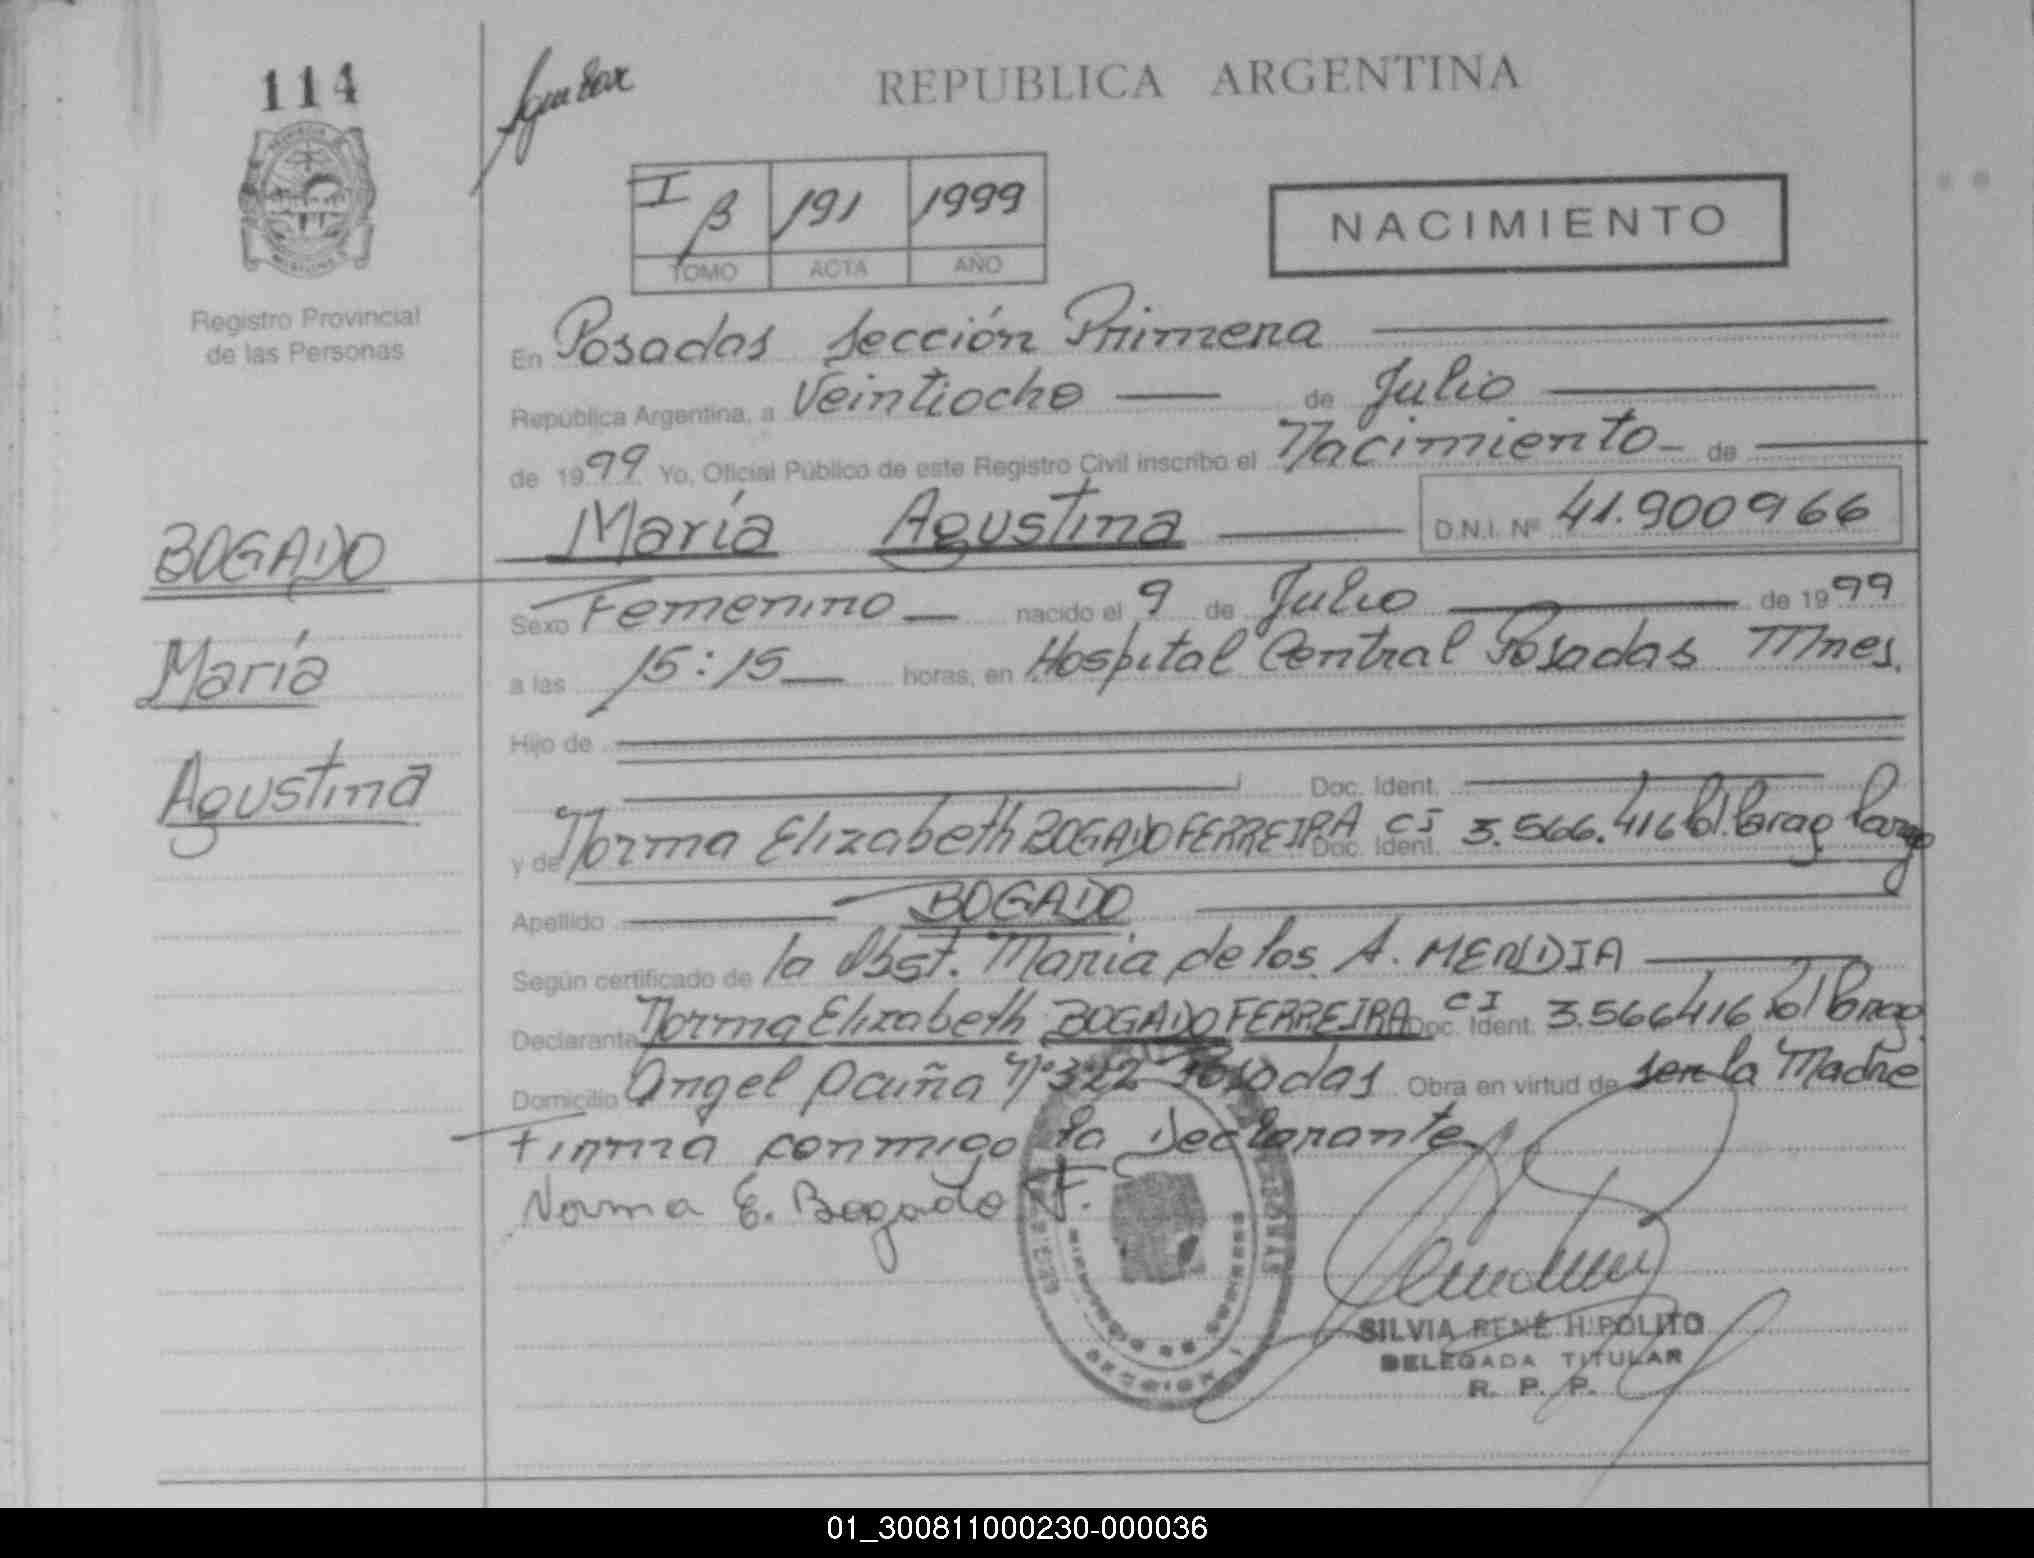 114
REPUBLICA ARGENTINA
I B 191 1999
TOMO ACTA AÑO
NACIMIENTO
Registro Provincial
de las Personas
En Posadas Sección Primera
República Argentina, a Veintiocho de Julio
de 1999 Yo, Oficial Público de este Registro Civil inscribo el Nacimiento de
María Agustina D.N.I. Nº 41.900966
BOGADO
María
Agustina
Sexo Femenino nacido el 9 de Julio de 1999
a las 15:15 horas, en Hospital Central Posadas Mnes.
Hijo de
Doc. Ident.
y de Norma Elizabeth BOGADO FERREIRA Doc. Ident. CI 3.566.416 Pol. Parag
Apellido BOGADO
Según certificado de la Obst. Maria de los A. MENDIA
Declarante Norma Elizabeth BOGADO FERREIRA Doc. Ident. CI 3.566416 Pol Parag
Domicilio Angel Acuña Nº 322 Posadas Obra en virtud de ser la Madre
Firma conmigo la Declarante
Norma E. Bogado F.
SILVIA RENÉ HIPOLITO
DELEGADA TITULAR
R. P. P.
SECCION 1
01_300811000230-000036